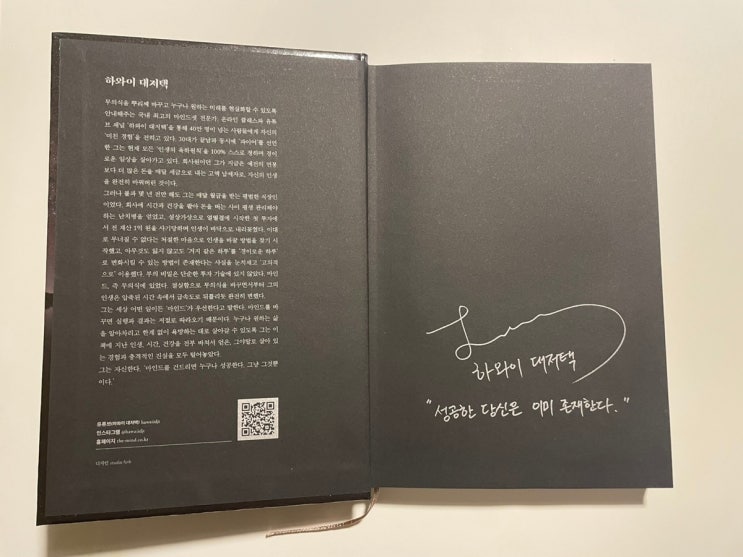 하와이 대저택
무의식을 뿌리째 바꾸고 누구나 원하는 미래를 현실화할 수 있도록
안내해주는 국내 최고의 마인드셋 전문가. 온라인 클래스와 유튜
브 채널 '하와이 대저택'을 통해 40만 명이 넘는 사람들에게 자신의
'미친 경험'을 전하고 있다. 30대가 끝남과 동시에 '파이어'를 선언
한 그는 현재 모든 '인생의 육하원칙'을 100% 스스로 정하며 경이
로운 일상을 살아가고 있다. 회사원이던 그가 지금은 예전의 연봉
보다 더 많은 돈을 매달 세금으로 내는 고액 납세자로, 자신의 인생
을 완전히 바꿔버린 것이다.
그러나 불과 몇 년 전만 해도 그는 매달 월급을 받는 평범한 직장인
이었다. 회사에 시간과 건강을 팔아 돈을 버는 사이 평생 관리해야
하는 난치병을 얻었고, 설상가상으로 얼떨결에 시작한 첫 투자에
서 전 재산 1억 원을 사기당하며 인생이 바닥으로 내리꽂혔다. 이대
로 무너질 수 없다는 처절한 마음으로 인생을 바꿀 방법을 찾기 시
작했고, 아무것도 잃지 않고도 '거지 같은 하루'를 '경이로운 하루'
로 변화시킬 수 있는 방법이 존재한다는 사실을 눈치채고 '고의적
으로' 이용했다. 부의 비밀은 단순한 투자 기술에 있지 않았다. 마인
드, 즉 무의식에 있었다. 절실함으로 무의식을 바꾸면서부터 그의
인생은 압축된 시간 속에서 급속도로 뒤틀리듯 완전히 변했다.
그는 세상 어떤 일이든 '마인드'가 우선한다고 말한다. 마인드를 바
꾸면 실행과 결과는 저절로 따라오기 때문이다. 누구나 원하는 삶
을 알아차리고 한계 없이 욕망하는 대로 살아갈 수 있도록 그는 이
책에 지난 인생, 시간, 건강을 전부 바쳐서 얻은, 그야말로 살아 있
는 경험과 충격적인 진실을 모두 털어놓았다.
그는 자신한다. '마인드를 건드리면 누구나 성공한다. 그냥 그것뿐
이다.'
유튜브(하와이 대저택) hawaiidjt
인스타그램 @hawaiidjt
홈페이지 the-mind.co.kr
디자인 studio forb
하와이 대저택
"성공한 당신은 이미 존재한다."